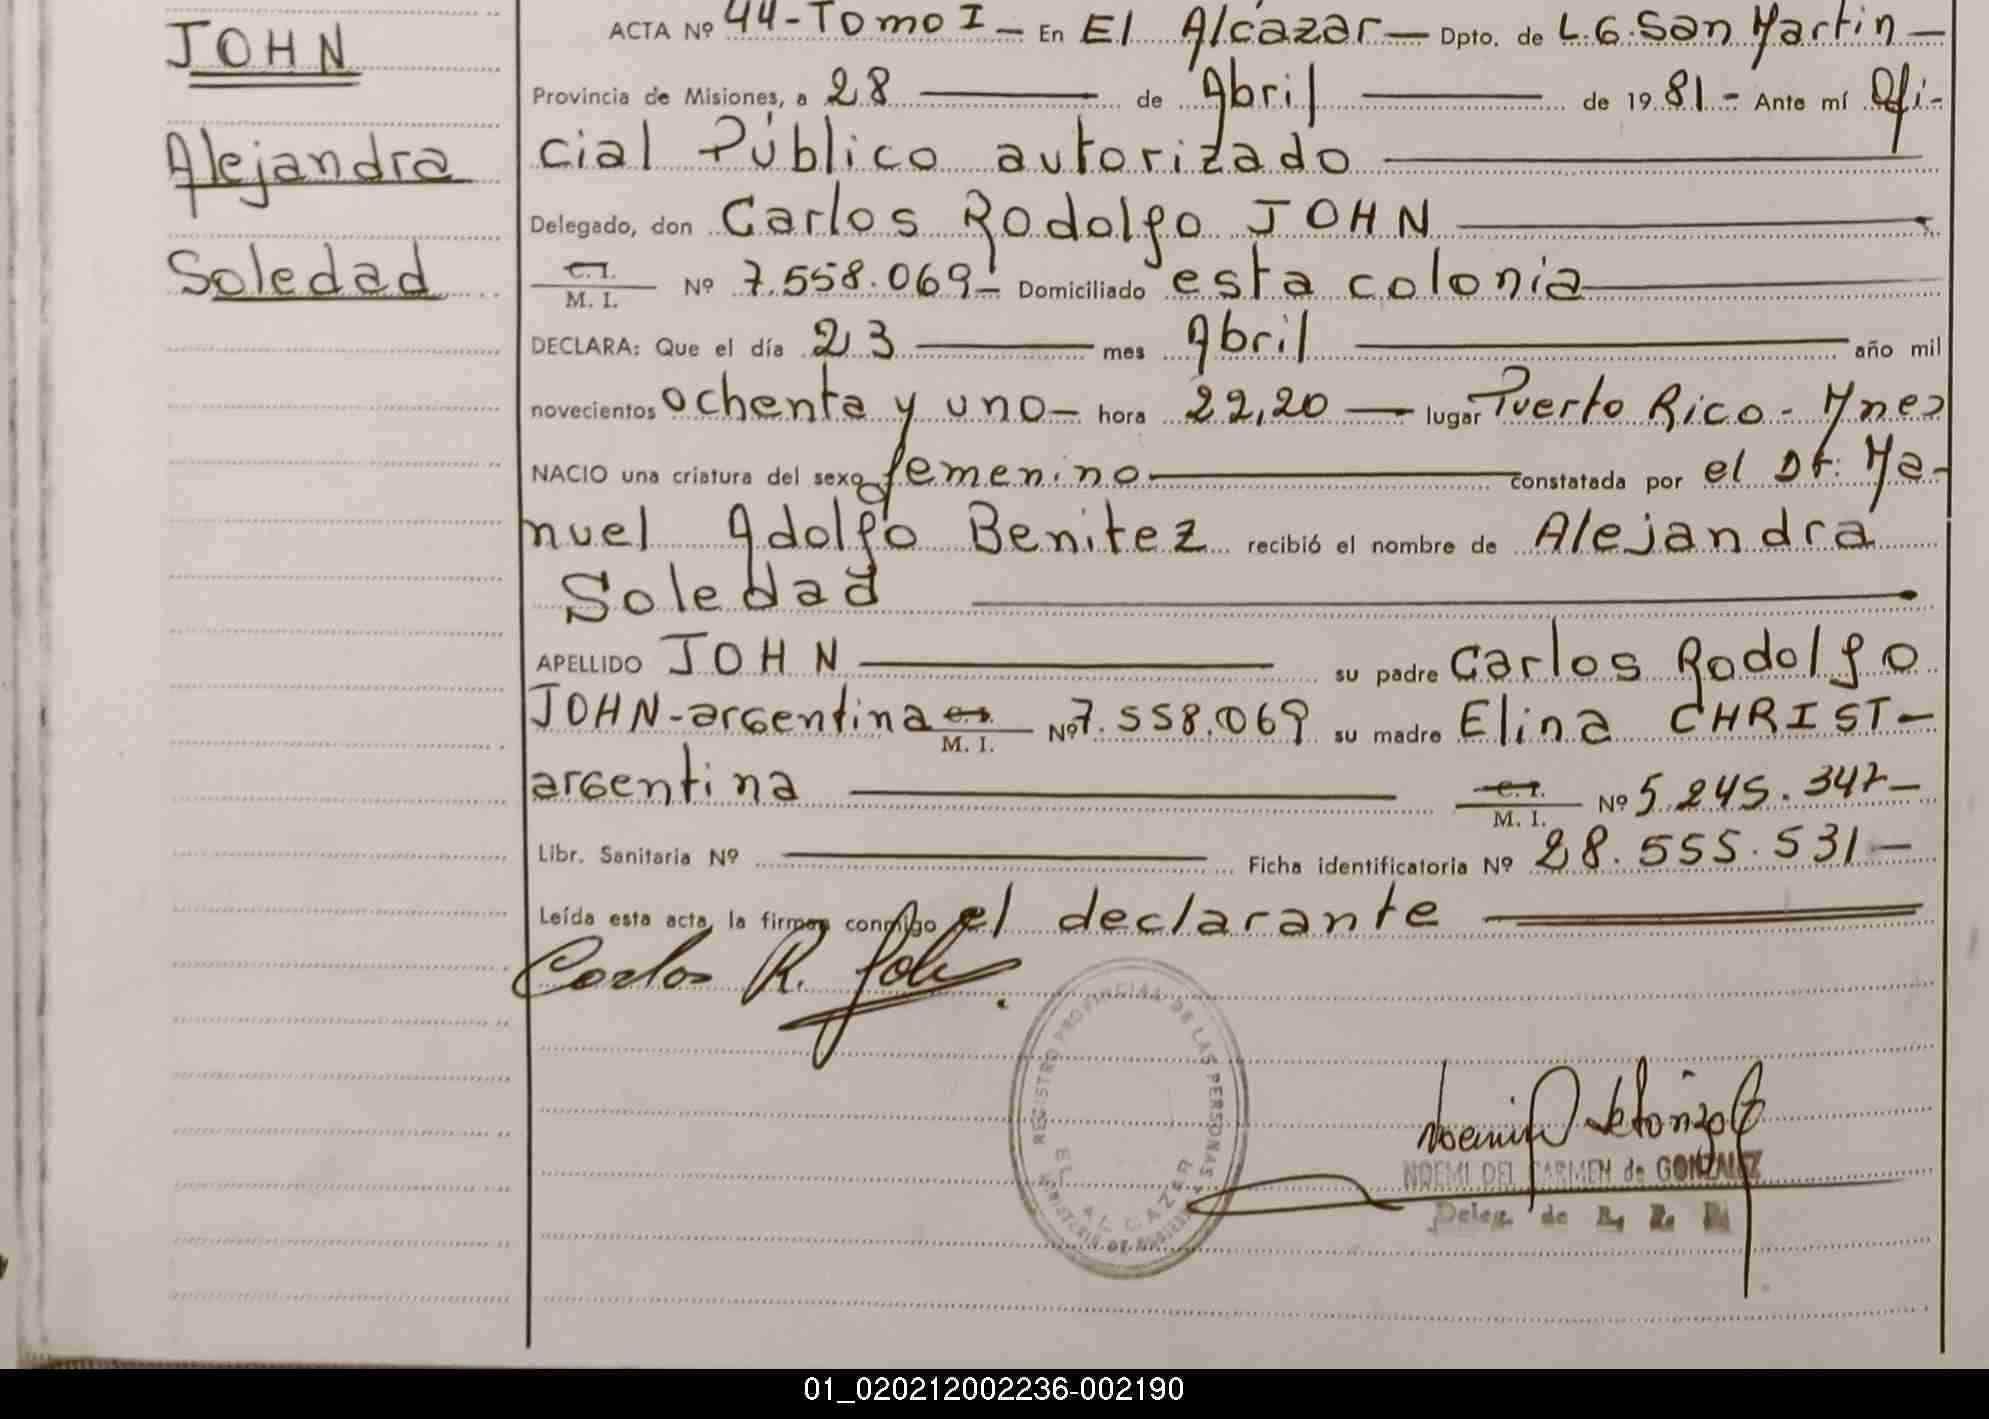 JOHN
Alejandra
Soledad
ACTA Nº 44-Tomo I - En El Alcázar - Dpto. de L.G.San Martín -
Provincia de Misiones, a 28 de Abril de 19 81 - Ante mí Ofi-
cial Público autorizado
Delegado, don Carlos Rodolfo JOHN
C.I.
M. I. Nº 7.558.069- Domiciliado esta colonia
DECLARA: Que el día 23 mes Abril año mil
novecientos ochenta y uno - hora 22,20 - lugar Puerto Rico - Mnes
NACIO una criatura del sexo femenino constatada por el Dr. Ma-
nuel Adolfo Benitez recibió el nombre de Alejandra
Soledad
APELLIDO JOHN su padre Carlos Rodolfo
JOHN-argentina C.I.
M. I. Nº 7.558.069 su madre Elina CHRIST-
argentina C.I.
M. I. Nº 5.245.347-
Libr. Sanitaria Nº Ficha identificatoria Nº 28.555.531-
Leída esta acta, la firman conmigo el declarante
Carlos R. John
REGISTRO PROVINCIAL DE LAS PERSONAS
EL ALCAZAR
MINISTERIO DE GOBIERNO
NOEMI DEL CARMEN de GONZALEZ
Deleg. de R. P.
01_020212002236-002190